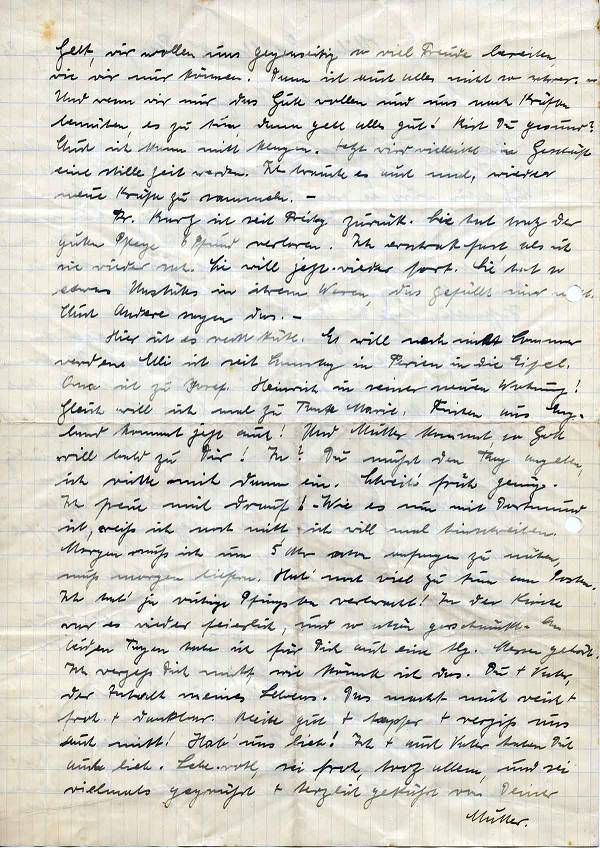 Gelt, wir wollen uns gegenseitig so viel Freude bereiten,
wie wir nur können. Dann ist auch alles nicht so schwer.
Und wenn wir nur das Gute wollen und uns nach Kräften
bemühen, es zu tun, dann geht alles gut! Bist Du gesund?
Auch ich kann nicht klagen. Jetzt wird vielleicht im Geschäft
eine stille Zeit werden. Ich brauche es auch mal, wieder
neue Kräfte zu sammeln. —
Fr. Kurz ist seit Freitag zurück. Sie hat trotz der
guten Pflege 6 Pfund verloren. Ich erschrak fast als ich
sie wieder sah. Sie will jetzt wieder fort. Sie hat so
etwas in ihrem Wesen, das gefällt mir nicht.
Auch Andere sagen das. —
Hier ist es recht kühl. Es will noch nicht Sommer
werden. Elli ist seit Samstag in Ferien in die Eifel.
Oma ist zu Josef. Heinrich in seiner neuen Wohnung!
Gleich will ich mal zu Tante Marie. aus Eng-
land kommt jetzt auch! Und Mutter kommt so Gott
will bald zu Dir! Ja? Du musst den Tag angeben,
ich richte mich dann ein. Schreib früh genug.
Ich freue mich drauf! Wie es nun mit Dortmund
ist, weiss ich noch nicht, ich will mal hinschreiben.
Morgen muss ich um 5 Uhr schon anfangen zu nähen,
muss morgen liefern. Hab' noch viel zu tun am
Ich hab' ja ruhige Pfingsten verbracht! In der Kirche
war es wieder feierlich, und so schön geschmückt. An
beiden Tagen habe ich für Dich auch eine hlg. Messe gehört.
Ich vergess Dich nicht, wie könnte ich das. Du + Vater,
der Inhalt meines Lebens. Das macht mich reich +
froh + dankbar. Bleibe gut + tapfer + vergiss uns
auch nicht! Hab' uns lieb! Ich + auch Vater haben Dich
auch lieb. Lebe wohl, sei froh, trotz allem, und sei
vielmals gegrüsst + herzlich geküsst von Deiner
Mutter.